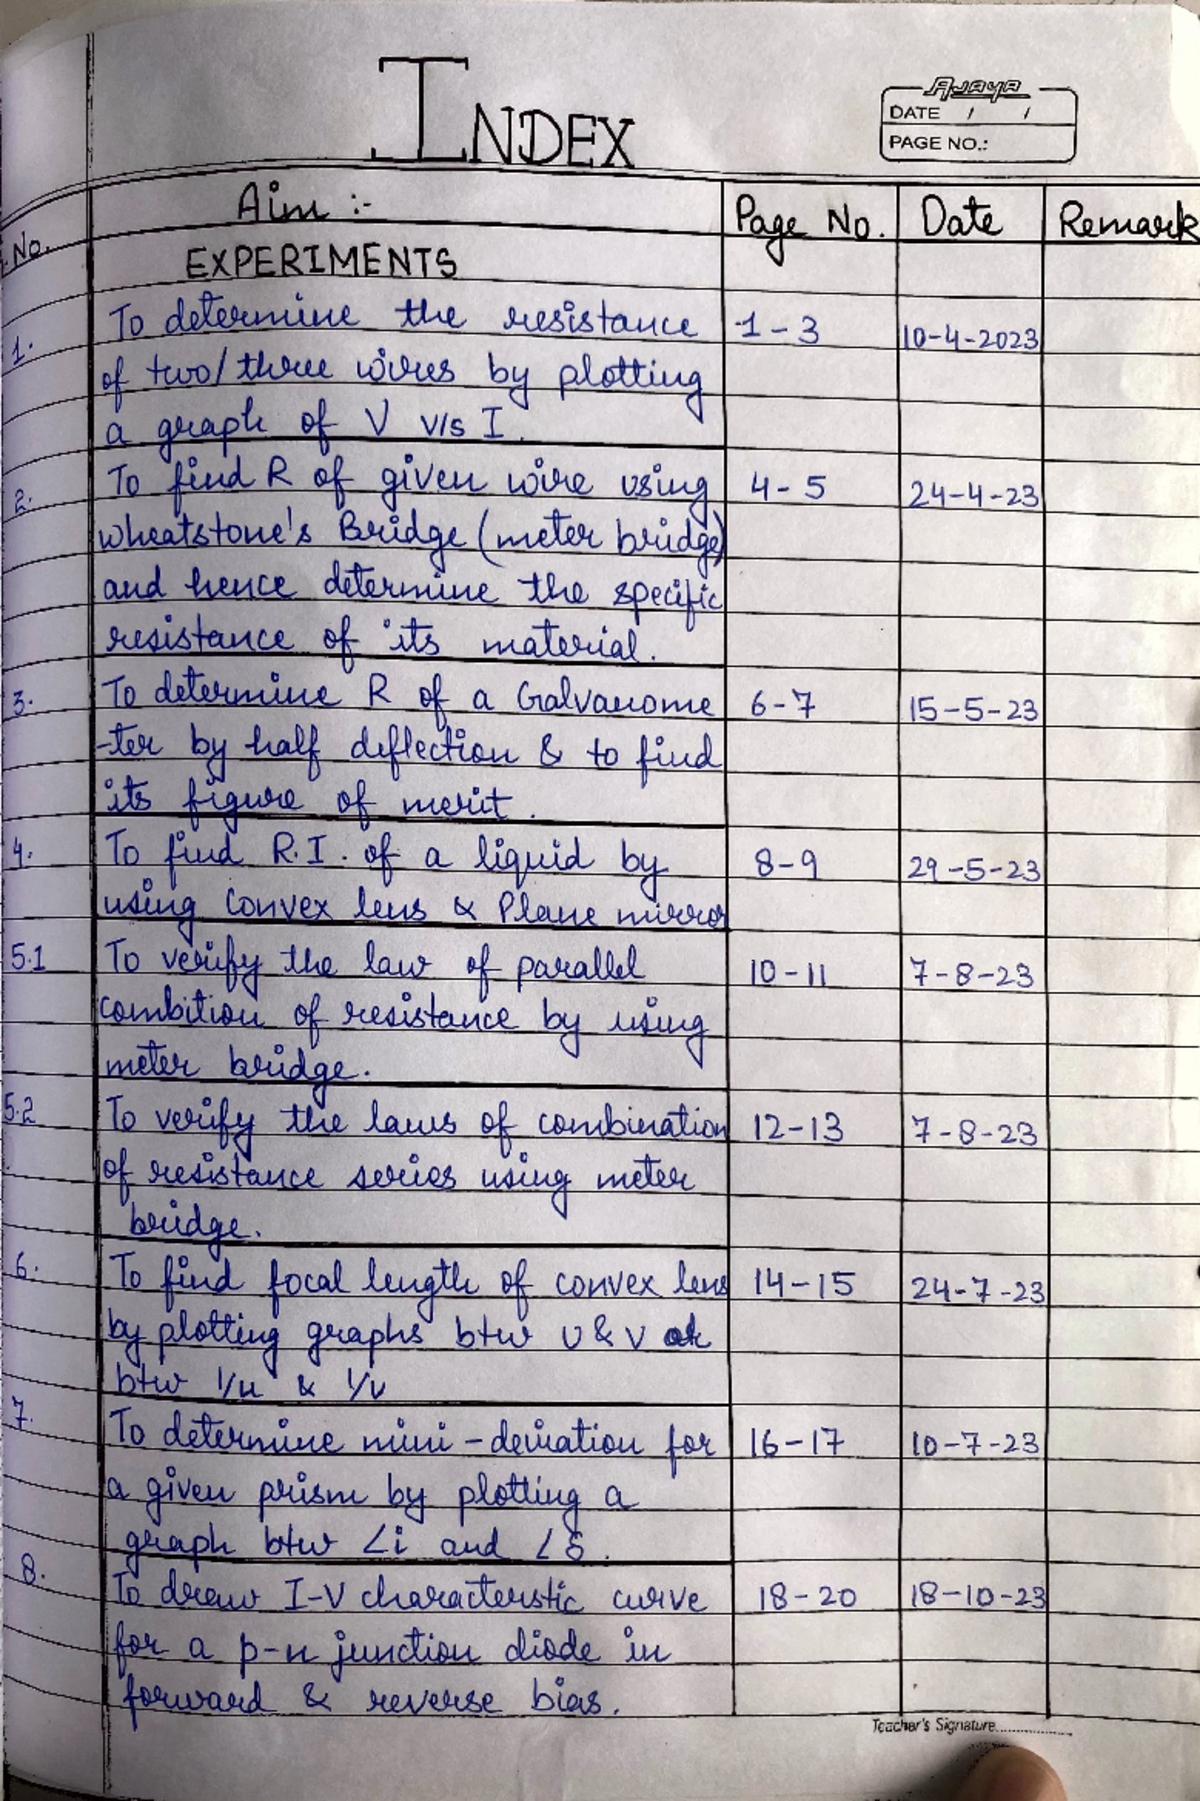 INDEX
Ajaya
DATE / /
PAGE NO.:
No. Aim :- Page No. Date Remark
EXPERIMENTS
1. To determine the resistance 1-3 10-4-2023
of two/three wires by plotting
a graph of V v/s I.
2. To find R of given wire using 4-5 24-4-23
wheatstone's Bridge (meter bridge)
and hence determine the specific
resistance of its material.
3. To determine R of a Galvanome 6-7 15-5-23
-ter by half deflection & to find
its figure of merit.
4. To find R.I. of a liquid by 8-9 29-5-23
using convex lens & Plane mirror
5.1 To verify the law of parallel 10-11 7-8-23
combition of resistance by using
meter bridge.
5.2 To verify the laws of combination 12-13 7-8-23
of resistance series using meter
bridge.
6. To find focal length of convex lens 14-15 24-7-23
by plotting graphs btw u & v or
btw 1/u & 1/v
7. To determine mini-deviation for 16-17 10-7-23
a given prism by plotting a
graph btw ∠i and ∠δ.
8. To draw I-V characterstic curve 18-20 18-10-23
for a p-n junction diode in
forward & reverse bias.
Teacher's Signature...............